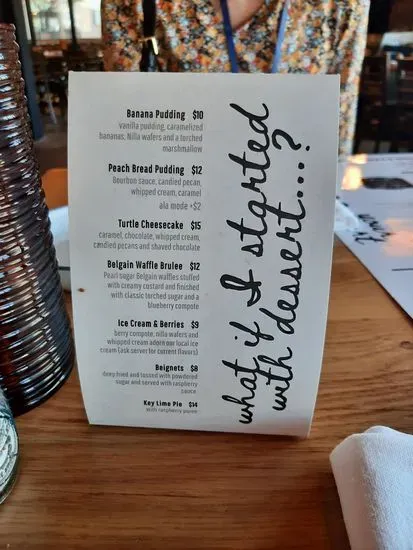 Banana Pudding $10
vanilla pudding, caramelized
bananas, Nilla wafers and a torched
marshmallow
Peach Bread Pudding $12
Bourbon sauce, candied pecan,
whipped cream, caramel
ala mode +$2
Turtle Cheesecake $15
caramel, chocolate, whipped cream,
candied pecans and shaved chocolate
Belgain Waffle Brulee $12
Pearl sugar Belgain waffles stuffed
with creamy custard and finished
with classic torched sugar and a
blueberry compote
Ice Cream & Berries $9
berry compote, nilla wafers and
whipped cream adorn our local ice
cream (ask server for current flavors)
Beignets $8
deep fried and tossed with powdered
sugar and served with raspberry
sauce
Key Lime Pie $14
With raspberry puree
what if I started
with dessert...?